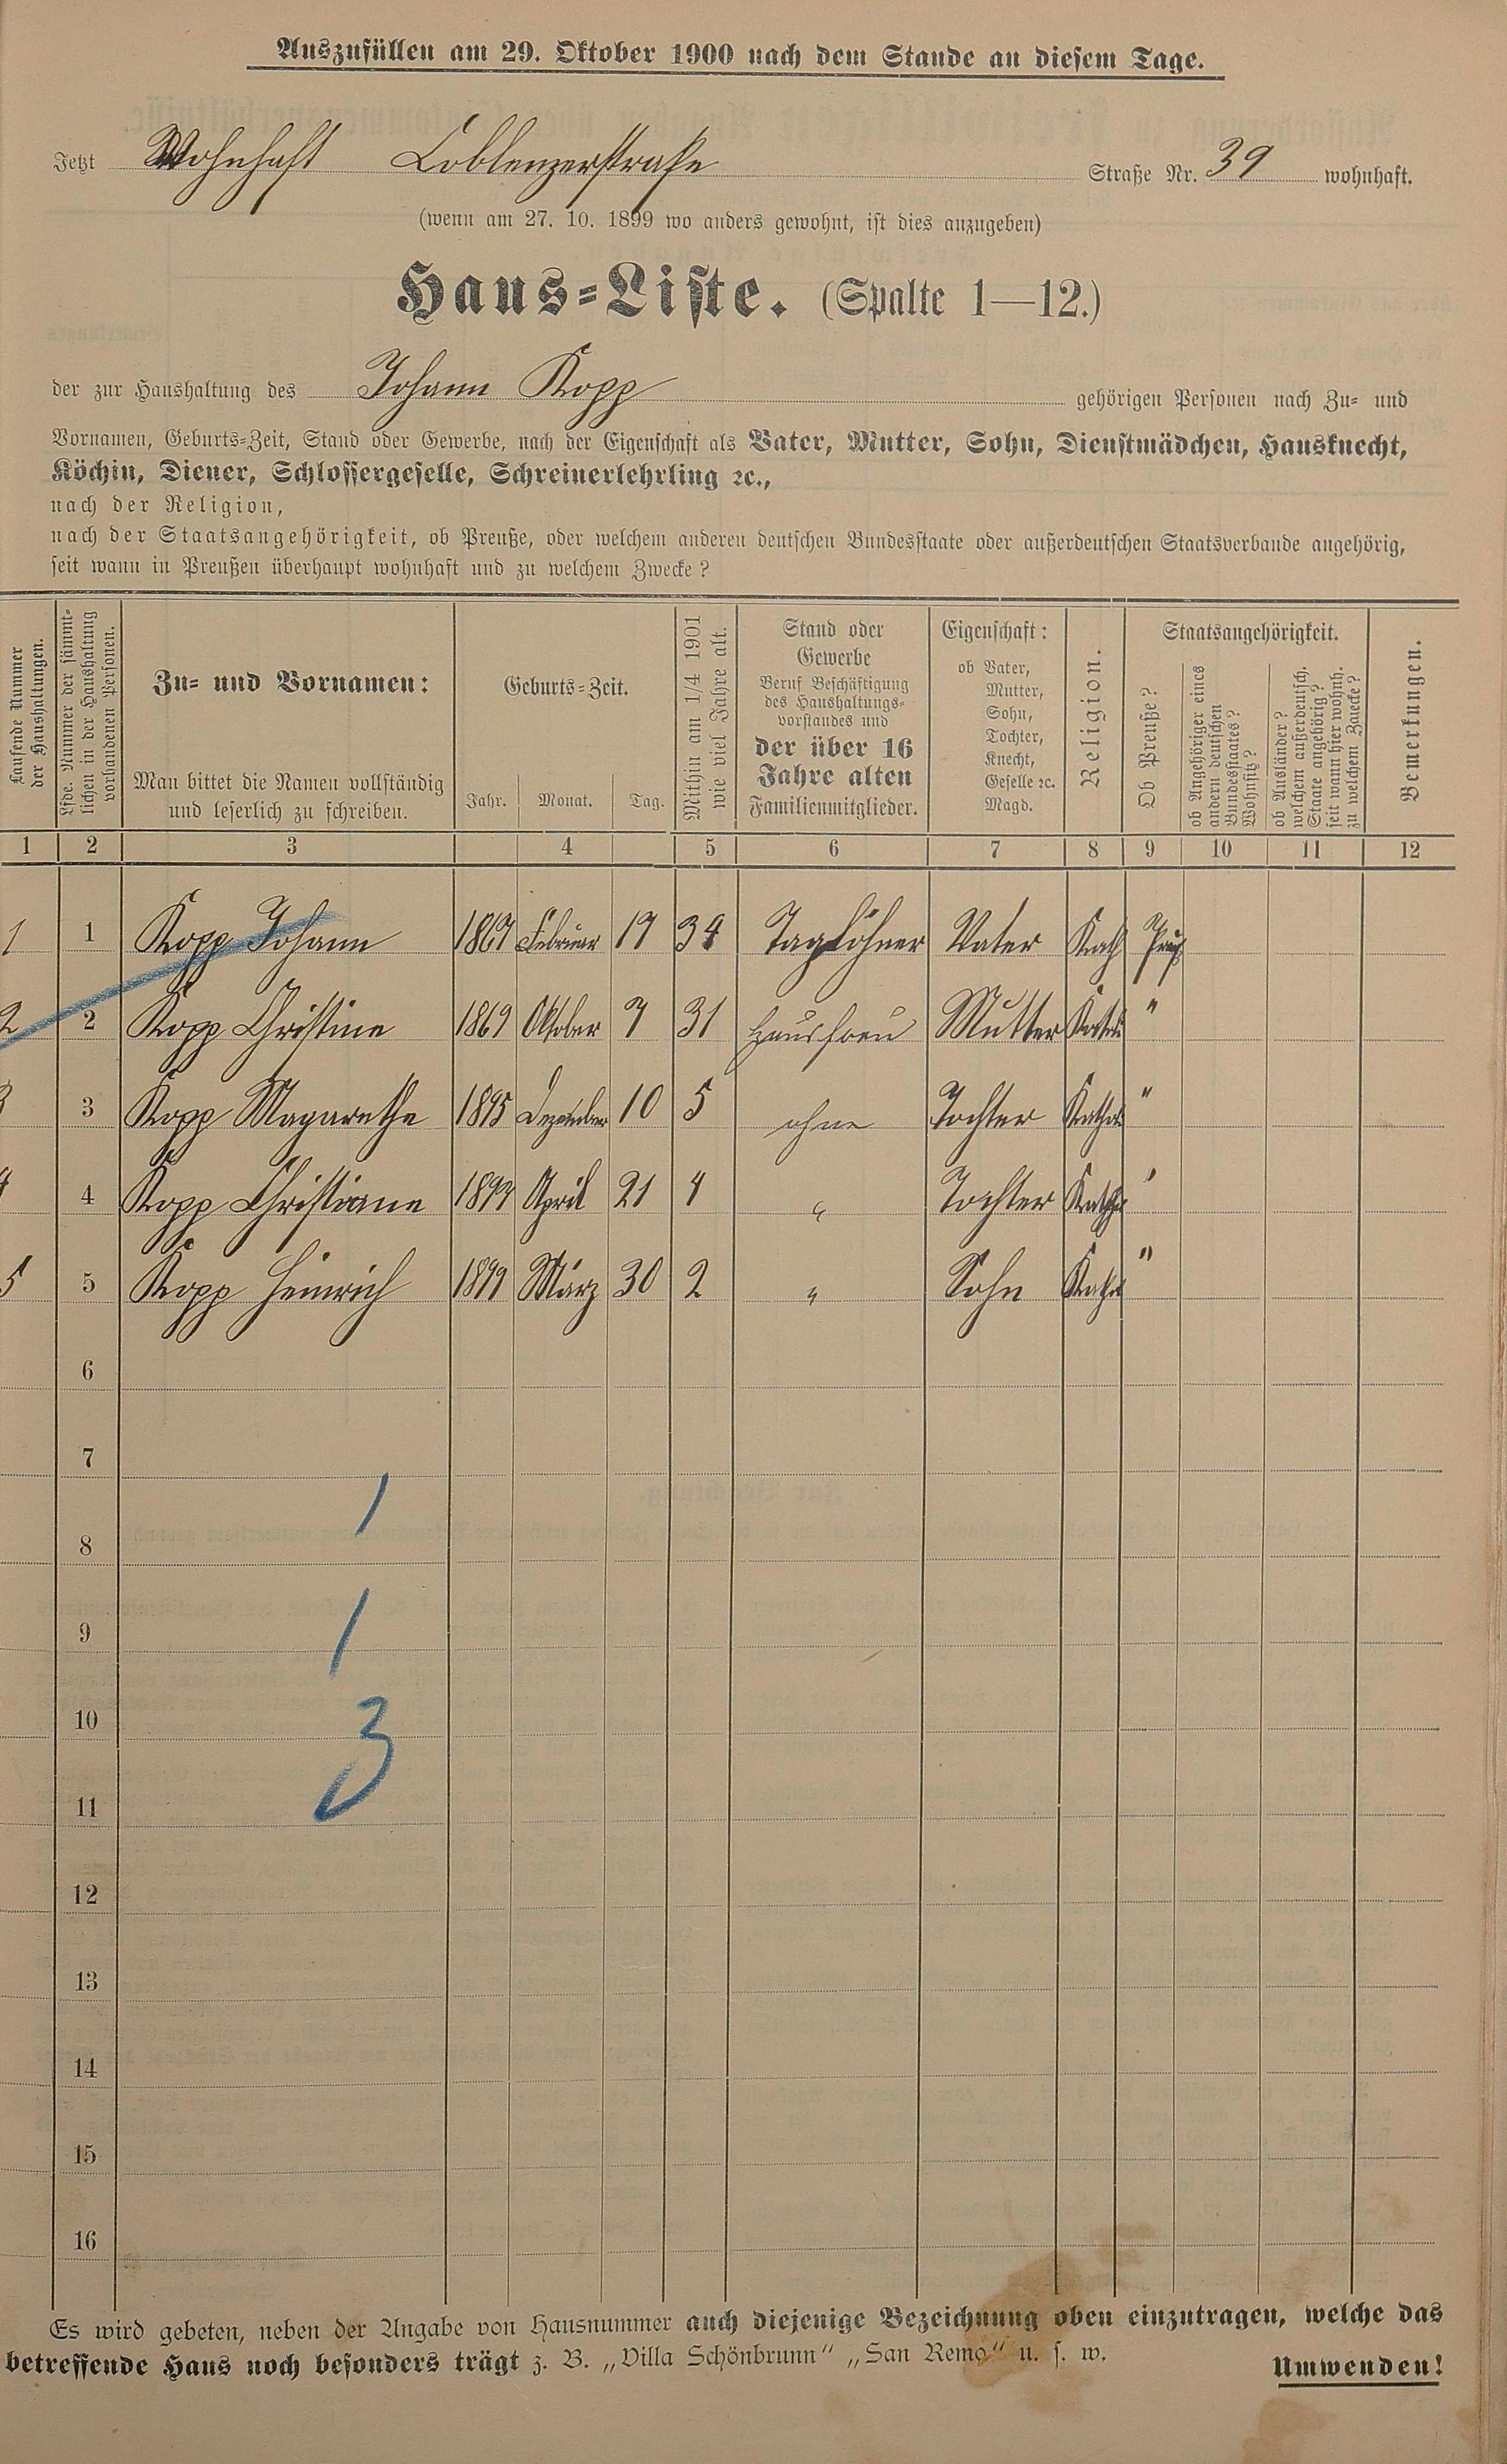 Auszufüllen am 29. Oktober 1900 nach dem Stande an diesem Tage.
Jetzt Wohnhaft Coblenzerstraße Straße Nr. 39 wohnhaft.
(wenn am 27. 10. 1899 wo anders gewohnt, ist dies anzugeben)
Haus-Liste. (Spalte 1—12.)
der zur Haushaltung des Johann Kopp gehörigen Personen nach Zu- und
Vornamen, Geburts-Zeit, Stand oder Gewerbe, nach der Eigenschaft als Vater, Mutter, Sohn, Dienstmädchen, Hausknecht,
Köchin, Diener, Schlossergeselle, Schreinerlehrling ꝛc.,
nach der Religion,
nach der Staatsangehörigkeit, ob Preuße, oder welchem anderen deutschen Bundesstaate oder außerdeutschen Staatsverbande angehörig,
seit wann in Preußen überhaupt wohnhaft und zu welchem Zwecke?
Laufende Nummer
der Haushaltungen.
Lfde. Nummer der sämmt-
lichen in der Haushaltung
vorhandenen Personen.
Zu- und Vornamen:
Man bittet die Namen vollständig
und leserlich zu schreiben.
Geburts-Zeit.
Jahr. Monat. Tag.
Mithin am 1/4 1901
wie viel Jahre alt.
Stand oder
Gewerbe
Beruf Beschäftigung
des Haushaltungs-
vorstandes und
der über 16
Jahre alten
Familienmitglieder.
Eigenschaft:
ob Vater,
Mutter,
Sohn,
Tochter,
Knecht,
Geselle ꝛc.
Magd.
Religion.
Staatsangehörigkeit.
Ob Preuße?
ob Angehöriger eines
andern deutschen
Bundesstaates?
Wohnsitz?
ob Ausländer?
welchem außerdeutsch.
Staate angehörig?
seit wann hier wohnh.
zu welchem Zwecke?
Bemerkungen.
1 2 3 4 5 6 7 8 9 10 11 12
1 1 Kopp Johann 1867 Februar 17 34 Taglöhner Vater Kath
2 2 Kopp Christine 1869 Oktober 7 31 Hausfrau Mutter Kath "
3 3 Kopp Magarethe 1895 Dezember 10 5 ohne Tochter Kathol "
4 4 Kopp Christiane 1897 April 21 4 " Tochter Kathol "
5 5 Kopp Heinrich 1899 März 30 2 " Sohn Kathol "
6
7
1
8
1
9
10
3
11
12
13
14
15
16
Es wird gebeten, neben der Angabe von Hausnummer auch diejenige Bezeichnung oben einzutragen, welche das
betreffende Haus noch besonders trägt z. B. „Villa Schönbrunn“ „San Remo“ u. s. w.
Umwenden!